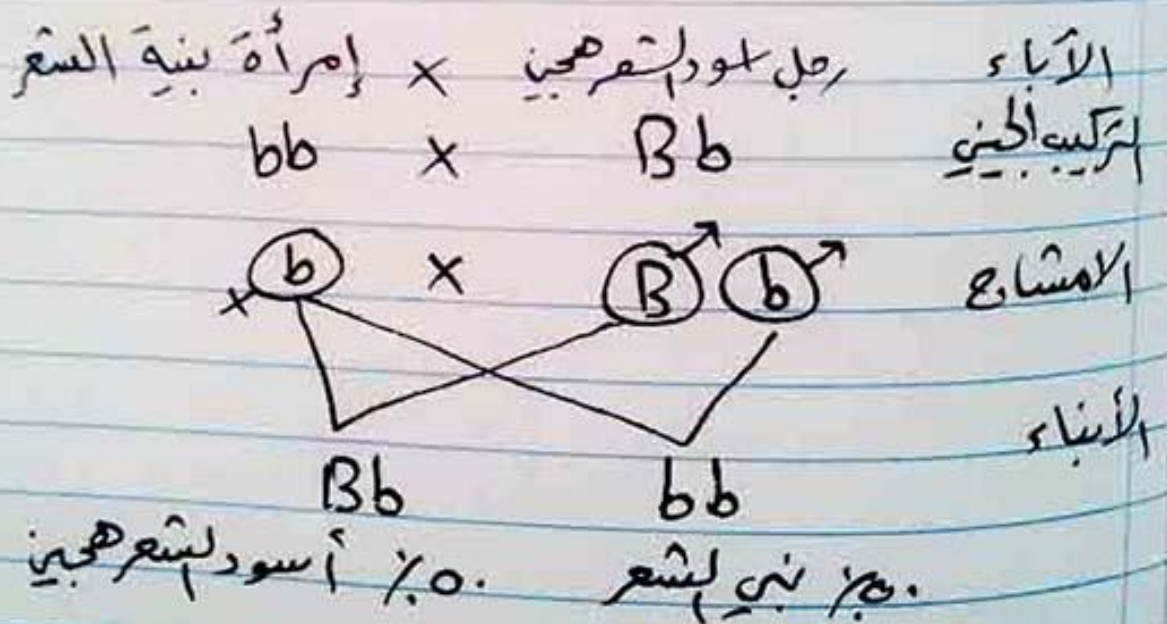 الآباء رجل اسود الشعر هجين × إمرأة بنية الشعر
التركيب الجيني Bb × bb
الامشاج B b × b
الأبناء
Bb bb
٥٠٪ أسود الشعر هجين ٥٠٪ بني الشعر